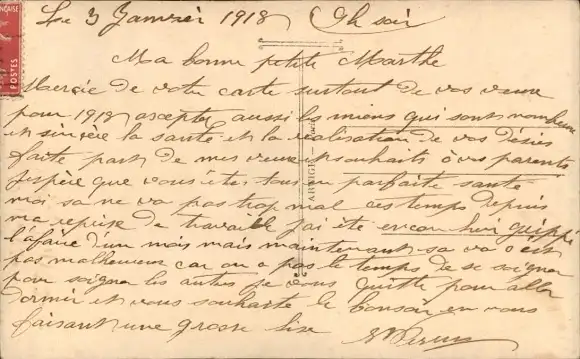 Le 3 Janvier 1918 9h soir
Ma bonne petite Marthe
Mercie de votre carte surtout de vos veux
pour 1918 acepter aussi les miens qui sont nombreux
et sincère la santé et la réalisation de vos désirs
faite part de mes veux et souhaits à vos parents
J'espère que vous êtes tous en parfaite santé
moi sa ne va pas trop mal ces temps depuis
ma reprise de travaille j'ai été encore grippé
l'afaire d'un mois mais maintenant sa va c'est
pas malheureux car on a pas le temps de se soigner
pour soigner les autres je vous quitte pour aller
dormir et vous souhaite le bonsoir en vous
faisant une grosse bise
POSTES